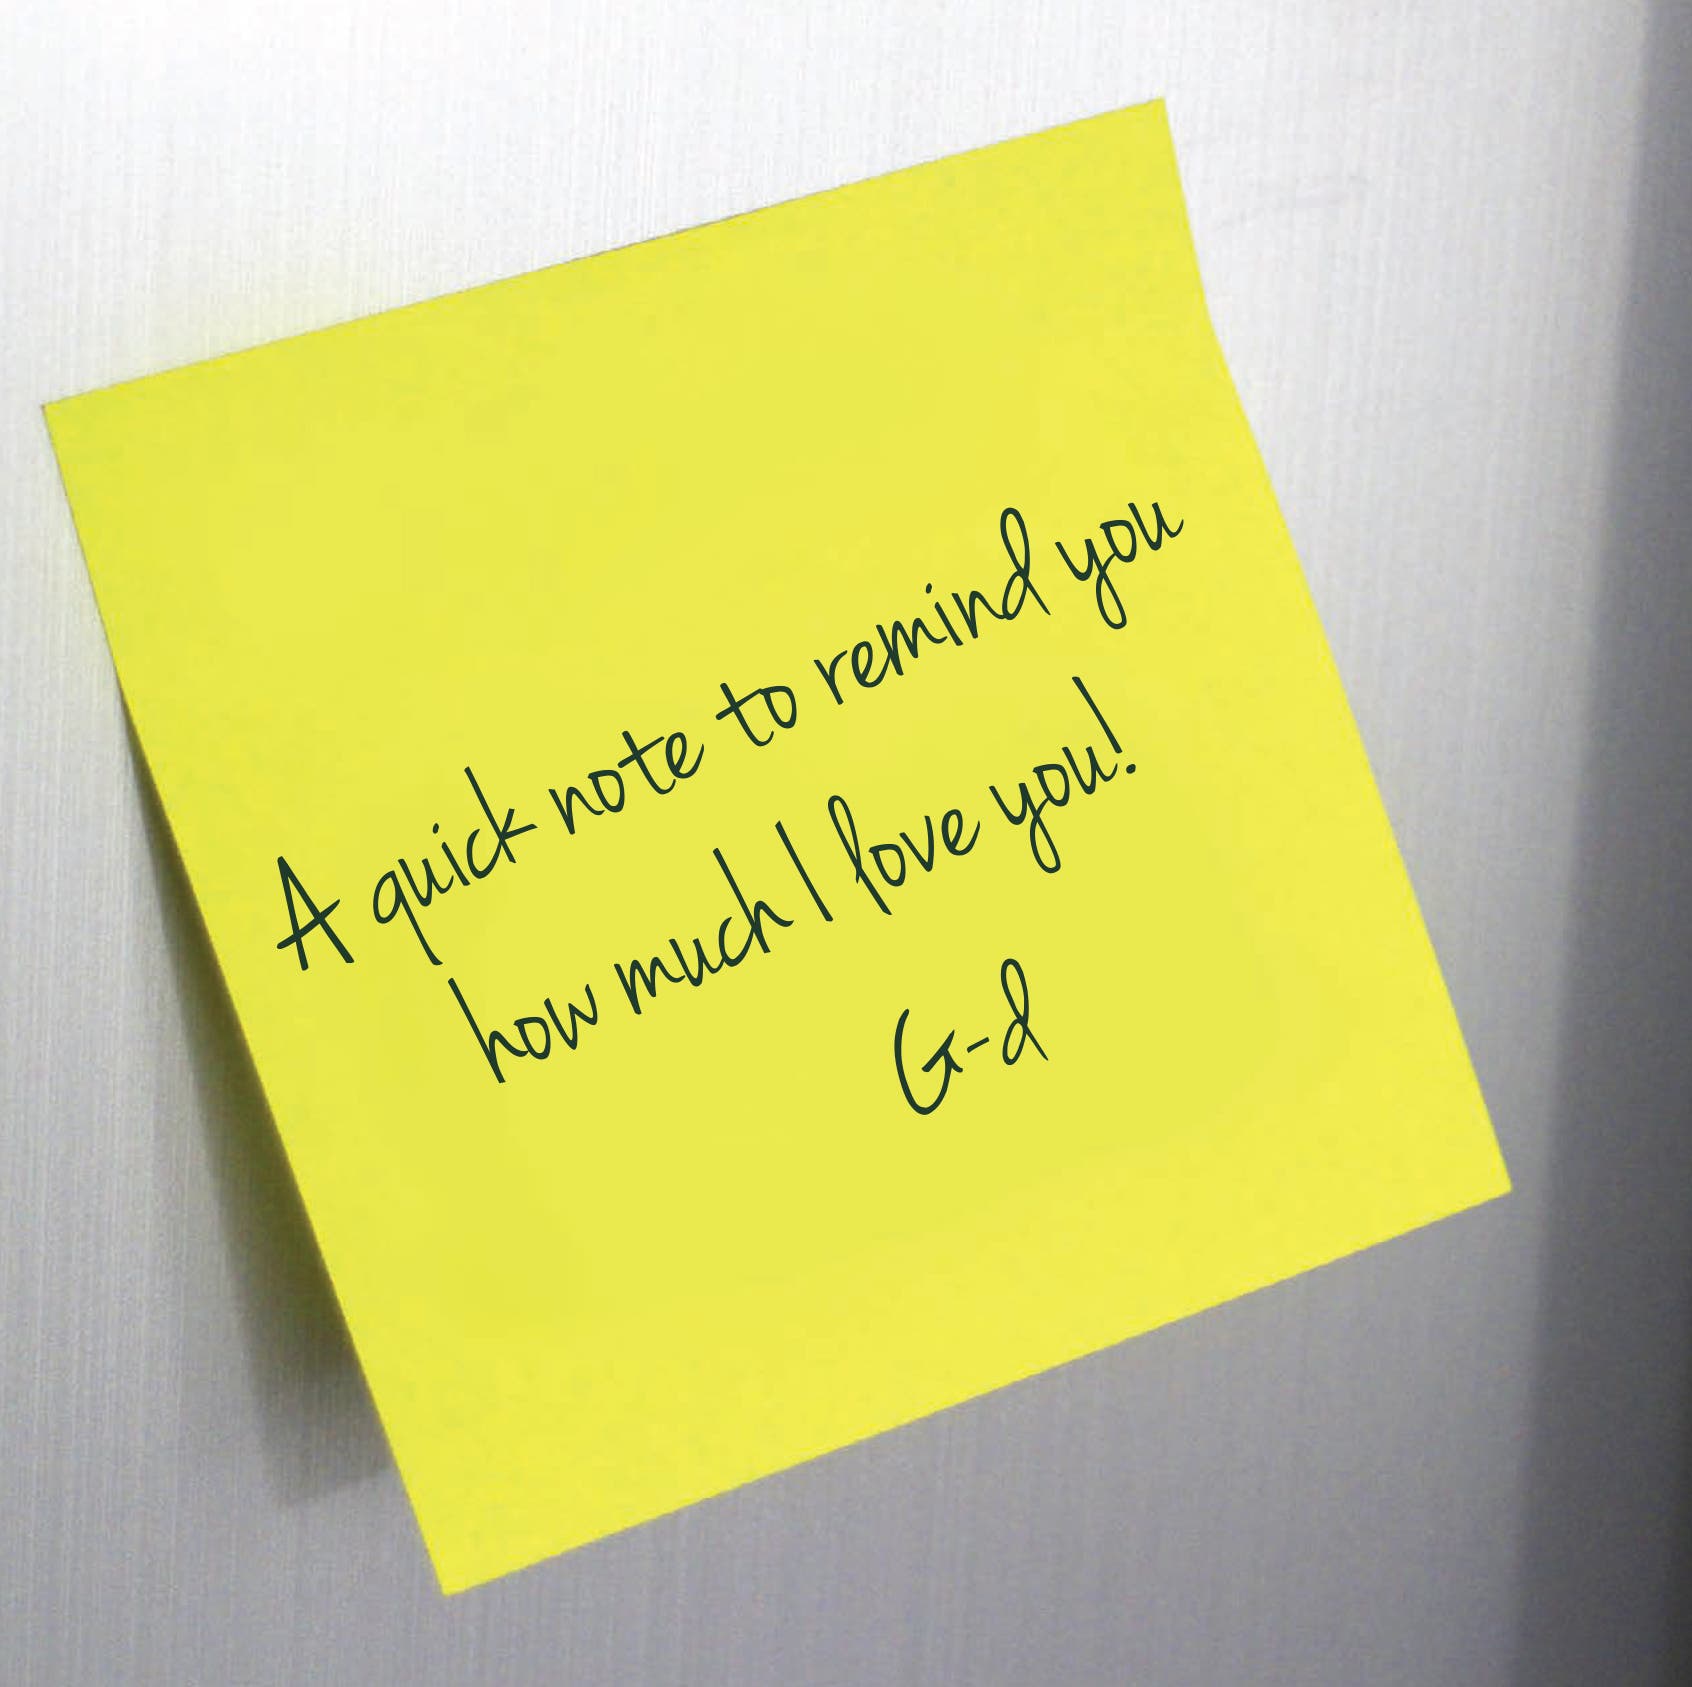 A quick note to remind you
how much I love you!
G-d